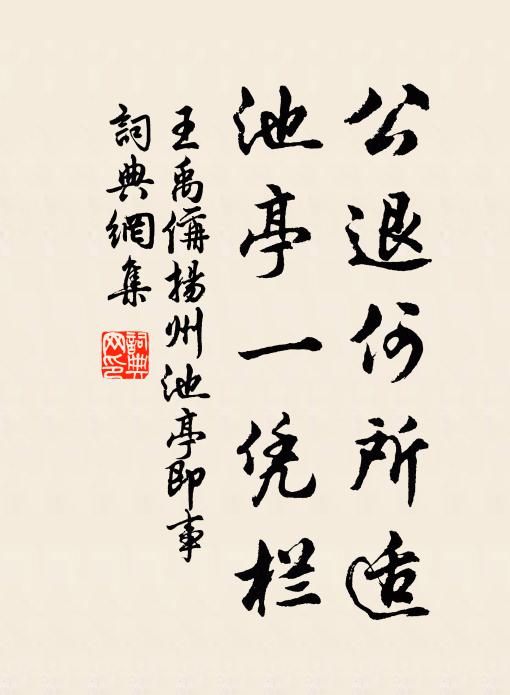 公退何所适
池亭一凭栏
王禹偁揚州池亭即事
詞典網集
詞典网印